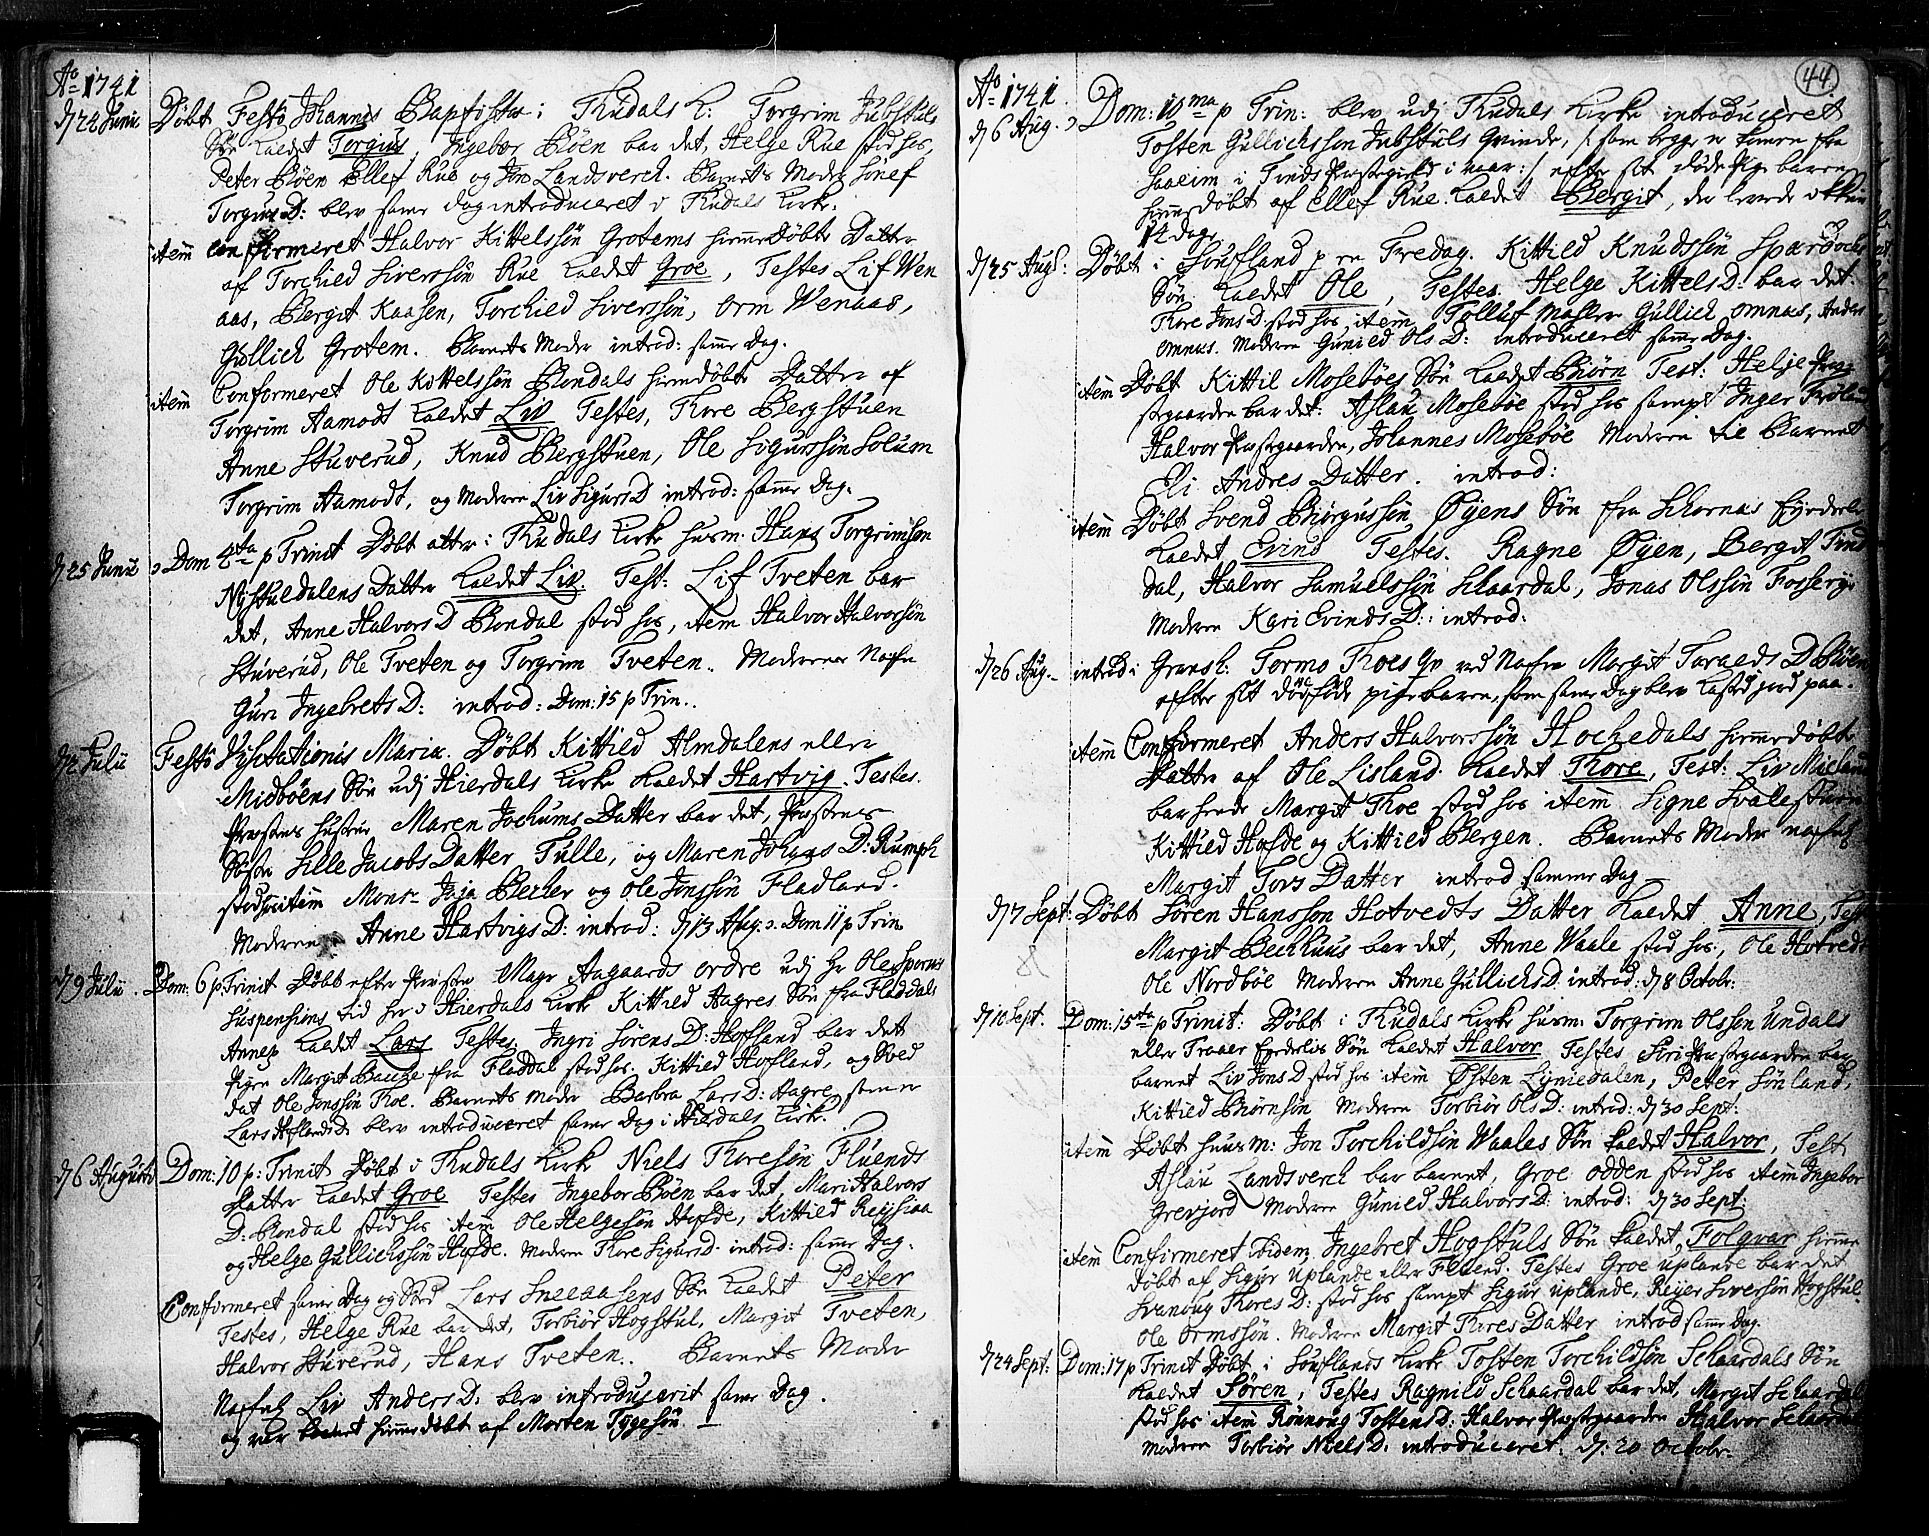 Ao 1741
d 24 Junii Döbt Festo Johannis Baptistæ i Thudals K: Torgrim Jubstuls
Sön kaldet Torgius, Ingebor Böen bar det, Helge Rue stod hos,
Peter Böen Ellef Rue og Jon Landsverch. Barnets Moder
Torgius D: blev same dag introduceret i Thudals Kirke.
item Confirmeret Halvor Kittelssön Grotems hiemedöbte Datter
af Torchild Siverssön Rue kaldet Groe, Testes Lif Wen
aas, Bergit Kaasen, Torchild Siverssön, Orm Wenaas,
Gullich Grotem. Barnets Moder introd: same Dag.
item Confirmeret Ole Kittelssön Bondals hiemdöbte Datter af
Torgrim Aamodt kaldet Liv Testes, Thore Bergstuen
Anne Stuverud, Knud Bergstuen, Ole Sigurssön Solum
Torgrim Aamodt, og Moderen Liv Sigurs D introd: same Dag.
d 25 Junii Dom 4ta p Trinit Döbt atter i Thudals Kirke husm: Hans Torgrimsön
Nystuldalens Datter kaldet Liv. Test: Lif Tveten bar
det, Anne Halvors D Bondal stod hos, item Halvor Halvorsön
Stuverud, Ole Tveten og Torgrim Tveten. Moderens Nafn
Guri Ingebrets D: introd: Dom: 15 p Trin.
d 2 Julii Festo Visitationis Mariæ. Döbt Kittild Almdalens eller
Midböens Sön udj Hierdals Kirke kaldet Hartvig. Testes.
Præstens Hustrue Maren Jochums Datter bar det, Præstens
Söster Sille Jacobs Datter Tulle, og Maren Johans D: Rumph
stod hos item Monsr Becher og Ole Jonssön Fladland.
Moderen Anne Hartvigs D: introd: d 13 Aug. Dom 11 p Trin
d 9 Julii. Dom: 6 p. Trinit Döbt efter Prosten Magr Aagaards ordre udj Hr Ole
Suspensions tid her i Hierdals Kirk Kittild Aagres Sön fra Fladdals
Annex kaldet Lars Testes Ingri Sörens D: Hofland bar det
Pigen Margit fra Fladdal stod hos. Kittild Hofland, og Sol
dat Ole Jonssön Thoe. Barnets moder Barbra Lars D: Aagre
blev introduceret same Dag i Hierdals Kirk.
d 6 Augusti Dom: 10 p: Trinit Döbt i Thudals Kirk Niels Thoresön Fluends
Datter kaldet Groe Testes Ingebor Böen bar det, Mari Halvors
D: Bondal stod hos item Ole Helgesön Hofde, Kittild
og Helge Gullichssön Hofde. Moderen Thore Sigurs D. introd: same Dag.
Confirmeret same Dag og Sted Lars Sneaasens Sön kaldet Peter
Testes, Helge Rue bar det, Torbiör Hogstul, Margit Tveten,
Halvor Stuverud, Hans Tveten. Barnets Moder
Nafnl Liv Anders D. blev introducerit same Dag.
og var barnet hiemedöbt af Morten Tygesön.
44.
Ao 1741.
d 6 Aug. Dom: 10ma p Trin: blev udj Thudals Kirke introduceret
Tosten Gullichsson Jubstuls Qvinde, /: som begge er komne fra
i Tinds Præstegield i vaar :/ efter sit Pige barn
hiemedöbt af Ellef Rue kaldet Bergit, der levede ikkun
14 dage
d 25 Augs: Döbt i Söufland p en Fredag. Kittild Knudssön
Sön kaldet Ole, Testes. Helge Kittels D: bar det.
Thore Jons D: stod hos, item Tolluf Gullich Omnæs, Anders
Omnæs. Moderen Gunild Ols D: introduceret same Dag.
item Döbt Kittil Moseböes Sön kaldet Biörn Test: Helje Præ
stgaarden bar det. Aslau Moseböe stod hos sampt Inger
Halvor Præstgaarden, Johannes Moseböe Moderen til Barnet
Eli Andres Datter. introd:
item Döbt Svend Biörgussön Öyens Sön fra
kaldet Evind Testes. Ragne Öyen, Bergit Tind
dal, Halvor Samuelssön Schaardal, Jonas Olssön
Moderen Kari Evinds D: introd:
d 26 Aug. introd: i Gransh: Tormo Thoes Qv ved Nafn Margit Taraldsd Böen
efter sit dödföde pigebarn, som same Dag blev kasted jord paa.
item Confirmeret Anders Halvorssön Hochedals hiemedöbte
Datter af Ole Lisland. kaldet Thore, Test: Liv
bar hende Margit Thoe stod hos item Signe
Kittild Hofde og Kittild Bergen. Barnets Moder nafnl
Margit Tors Datter introd samme Dag
d 7 Sept: Döbt Sören Hansson Hotvedts Datter kaldet Anne, Test
Margit Bechhuus bar det, Anne Waale stod hos, Ole Hotvedt
Ole Nordböe Moderen Anne Gullichs D: introd: d 8 Octobr:
d 10 Sept. Dom: 15ta p Trinit: Döbt i Thudals Kirke husm: Torgrim Olssön Undals
eller Sön kaldet Halvor Testes Siri Præstgaarden bar
barnet Liv Jons D stod hos item Östen, Peter Sönland,
Kittild Biörnsön Moderen Torbiör Ols D: introd: d 30 Sept:
item Döbt huusm: Jon Torchildsön Waales Sön kaldet Halvor, Test
Aslau Landsverch bar barnet, Groe Odden stod hos item Ingebor
Grevjord Moderen Gunild Halvors D: introd: d 30 Sept:
item Confirmeret ibidem Ingebret Hogstuls Sön kaldet Folqvar hieme
döbt af Sigur Uplande eller. Testes Groe Uplande bar det
Thores D: stod hos sampt Sigur Uplande, Reyer Siversön Hogstul.
Ole Ormssön. Moderen Margit Thores Datter introd same Dag.
d 24 Sept. Dom: 17 p Trinit Döbt i Söuflands Kirke Tosten Torchildsön Schaardals Sön
kaldet Sören, Testes Ragnild Schaardal bar det, Margit Schaardal
stod hos item Rönnoug Tostens D: Halvor Præstgaarden Halvor Schaardal
Moderen Torbiör Niels D: introduceret. d. 20 Octobr.